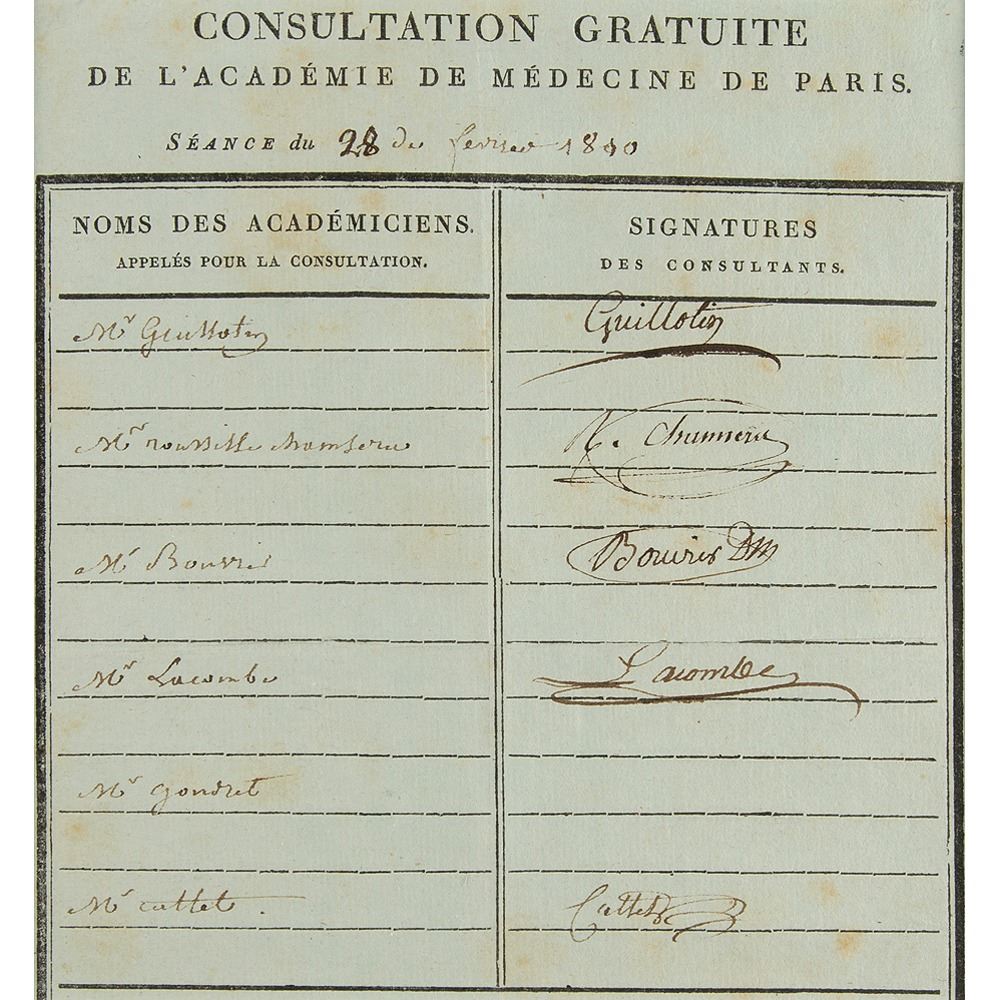 CONSULTATION GRATUITE
DE L'ACADÉMIE DE MÉDECINE DE PARIS.
SÉANCE du 28 de fevrier 1810
NOMS DES ACADÉMICIENS.
APPELÉS POUR LA CONSULTATION.
SIGNATURES
DES CONSULTANTS.
Mr Guillotin
Guillotin
Mr roussille chamseru
R. Chamseru
Mr Bouvier
Bouvier DM
Mr Lacombe
Lacombe
Mr gondret
Mr cattet.
Cattet